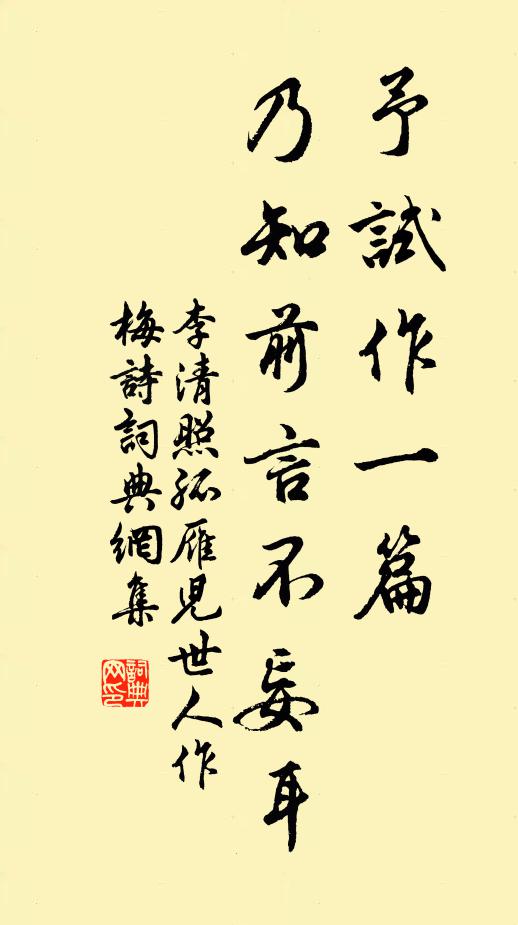 予試作一篇
乃知前言不妄耳
李清照孤雁兒世人作
梅詩詞典網集
詞典网印